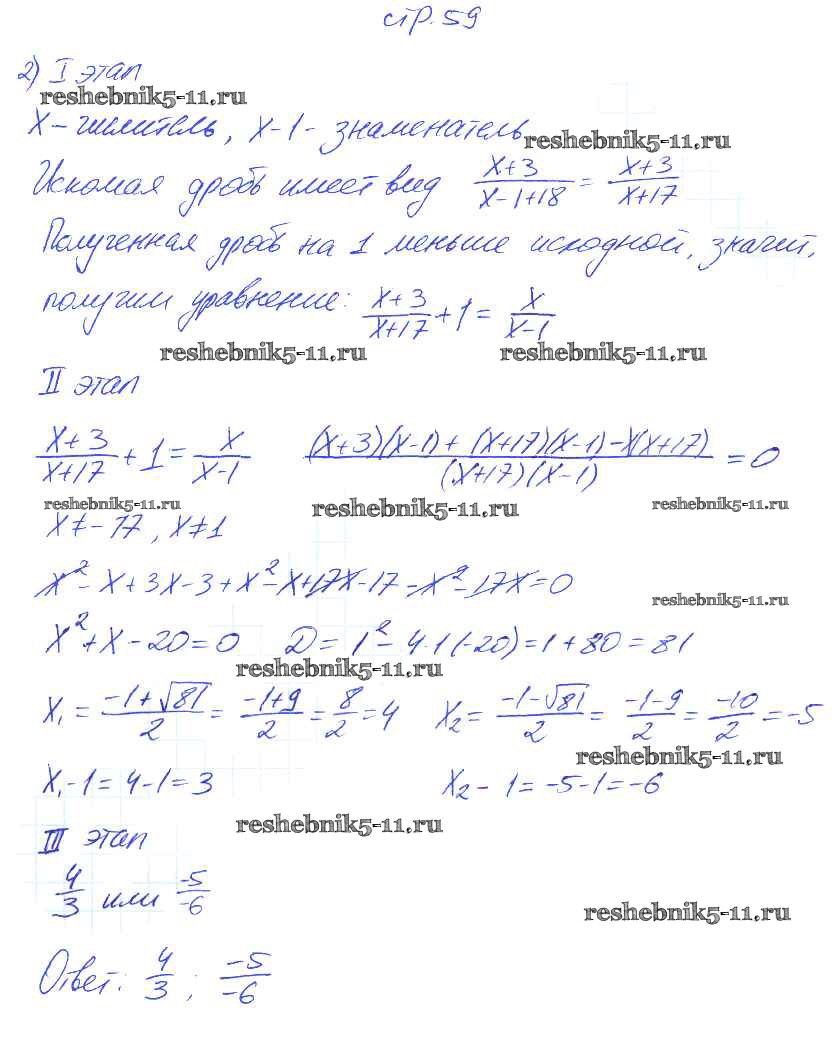 стр. 59
2) I этап
reshebnik5-11.ru
x – числитель, x-1 - знаменатель
reshebnik5-11.ru
Искомая дробь имеет вид (x+3)/(x-1+18) = (x+3)/(x+17)
Полученная дробь на 1 меньше исходной, значит,
получим уравнение: (x+3)/(x+17) + 1 = x/(x-1)
reshebnik5-11.ru reshebnik5-11.ru
II этап
(x+3)/(x+17) + 1 = x/(x-1) ((x+3)(x-1) + (x+17)(x-1) - x(x+17))/((x+17)(x-1)) = 0
reshebnik5-11.ru reshebnik5-11.ru reshebnik5-11.ru
x ≠ -17, x ≠ 1
x² - x + 3x - 3 + x² - x + 17x - 17 - x² - 17x = 0
reshebnik5-11.ru
x² + x - 20 = 0 D = 1² - 4·1(-20) = 1 + 80 = 81
reshebnik5-11.ru
x₁ = (-1+√81)/2 = (-1+9)/2 = 8/2 = 4 x₂ = (-1-√81)/2 = (-1-9)/2 = -10/2 = -5
reshebnik5-11.ru
x₁ - 1 = 4 - 1 = 3 x₂ - 1 = -5 - 1 = -6
reshebnik5-11.ru
III этап
4/3 или -5/-6
reshebnik5-11.ru
Ответ: 4/3 ; -5/-6